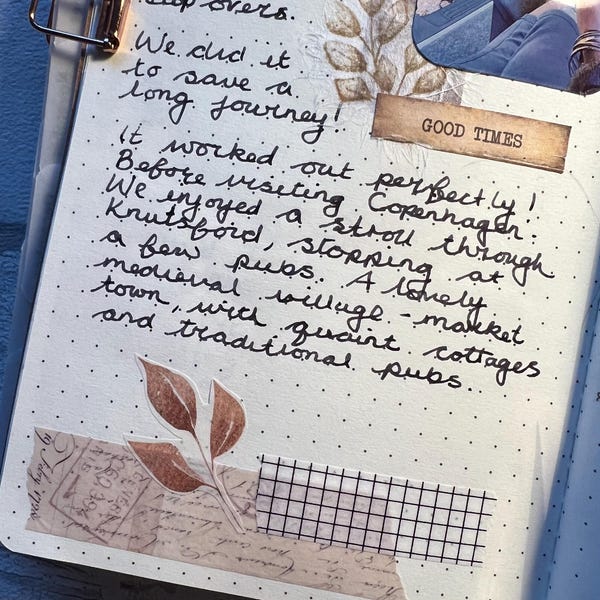 We did it
to save a
long journey!
GOOD TIMES
It worked out perfectly!
Before visiting Copenhagen.
We enjoyed a stroll through
Knutsford, stopping at
a few pubs. A lovely
medieval village - market
town, with quaint cottages
and traditional pubs.